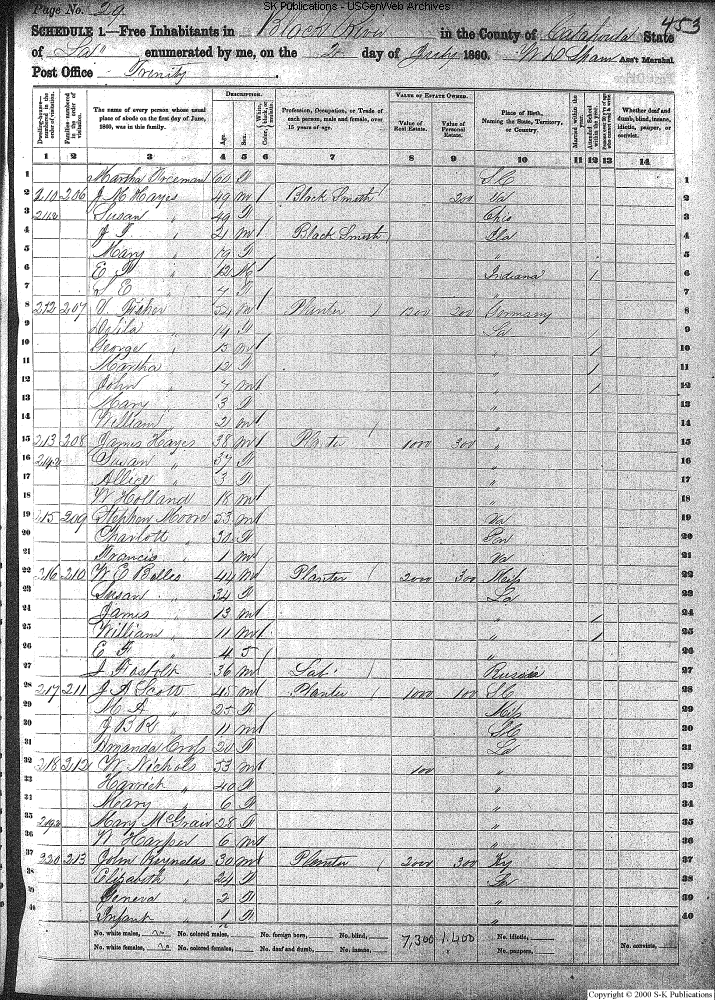 SK Publications - USGenWeb Archives
Page No. 29
453
SCHEDULE 1.—Free Inhabitants in Black River in the County of Catahoula State
of La enumerated by me, on the 2 day of July 1860. Ass't Marshal
Post Office Trinity
Dwelling-houses—numbered in the order of visitation.
Families numbered in the order of visitation.
The name of every person whose usual place of abode on the first day of June, 1860, was in this family.
DESCRIPTION.
Age.
Sex.
Color,
Profession, Occupation, or Trade of each person, male and female, over 15 years of age.
VALUE OF ESTATE OWNED.
Value of Real Estate.
Value of Personal Estate.
Place of Birth, Naming the State, Territory, or Country.
Married within the year.
Attended School within the year.
Whether deaf and dumb, blind, insane, idiotic, pauper, or convict.
1 2 3 4 5 6 7 8 9 10 11 12 13 14
1 Martha Freeman 60 F SC 1
2 210 206 J M Hayes 49 m / Black Smith / 200 Va 2
3 211 Susan " 49 F Ohio 3
4 J F " 21 m / Black Smith Ila 4
5 Mary " 19 F " 5
6 E F " 12 M Indiana / 6
7 S E " 4 F " 7
8 212 207 V Fisher 54 m / Planter / 1200 200 Germany 8
9 14 F La / 9
10 George " 13 m / " / 10
11 Martha " 12 F " / 11
12 John " 7 m / " / 12
13 Mary " 3 F " 13
14 William " 2 m / " 14
15 213 208 James Hayes 38 m / Planter / 1000 300 " 15
16 214 Susan " 37 F " 16
17 Allice " 3 F " 17
18 W Holland 18 m / " 18
19 215 209 Stephen Moore 53 m / Va 19
20 Charlott " 30 F Pen 20
21 Francis " 1 m / Va 21
22 216 210 W E Bolles 44 m / Planter / 2000 300 Miss 22
23 Susan " 34 F La 23
24 James " 13 m / " / 24
25 William " 11 m / " / 25
26 C F " 4 F " 26
27 J 36 m / Lab / Russia 27
28 217 211 J A Scott 45 m / Planter / 1000 100 SC 28
29 M A " 25 F Miss 29
30 J B R " 11 m / SC 30
31 Amanda Cross 20 F La 31
32 218 212 W Nichols 53 m / 100 " 32
33 " 40 F " 33
34 Mary " 6 F " 34
35 219 Mary 28 F " 35
36 W Harper 6 m / " 36
37 220 213 John Reynolds 30 m / Planter / 2000 300 Ky 37
38 Elizabeth " 24 F 38
39 Geneva " 2 F " 39
40 Infant " 1 F " 40
No. white males, 20 No. colored males, No. foreign born, No. blind, 7,300 1,400 No. idiotic,
No. white females, 20 No. colored females, No. deaf and dumb, No. insane, No. paupers, No. convicts,
Copyright © 2000 S-K Publications